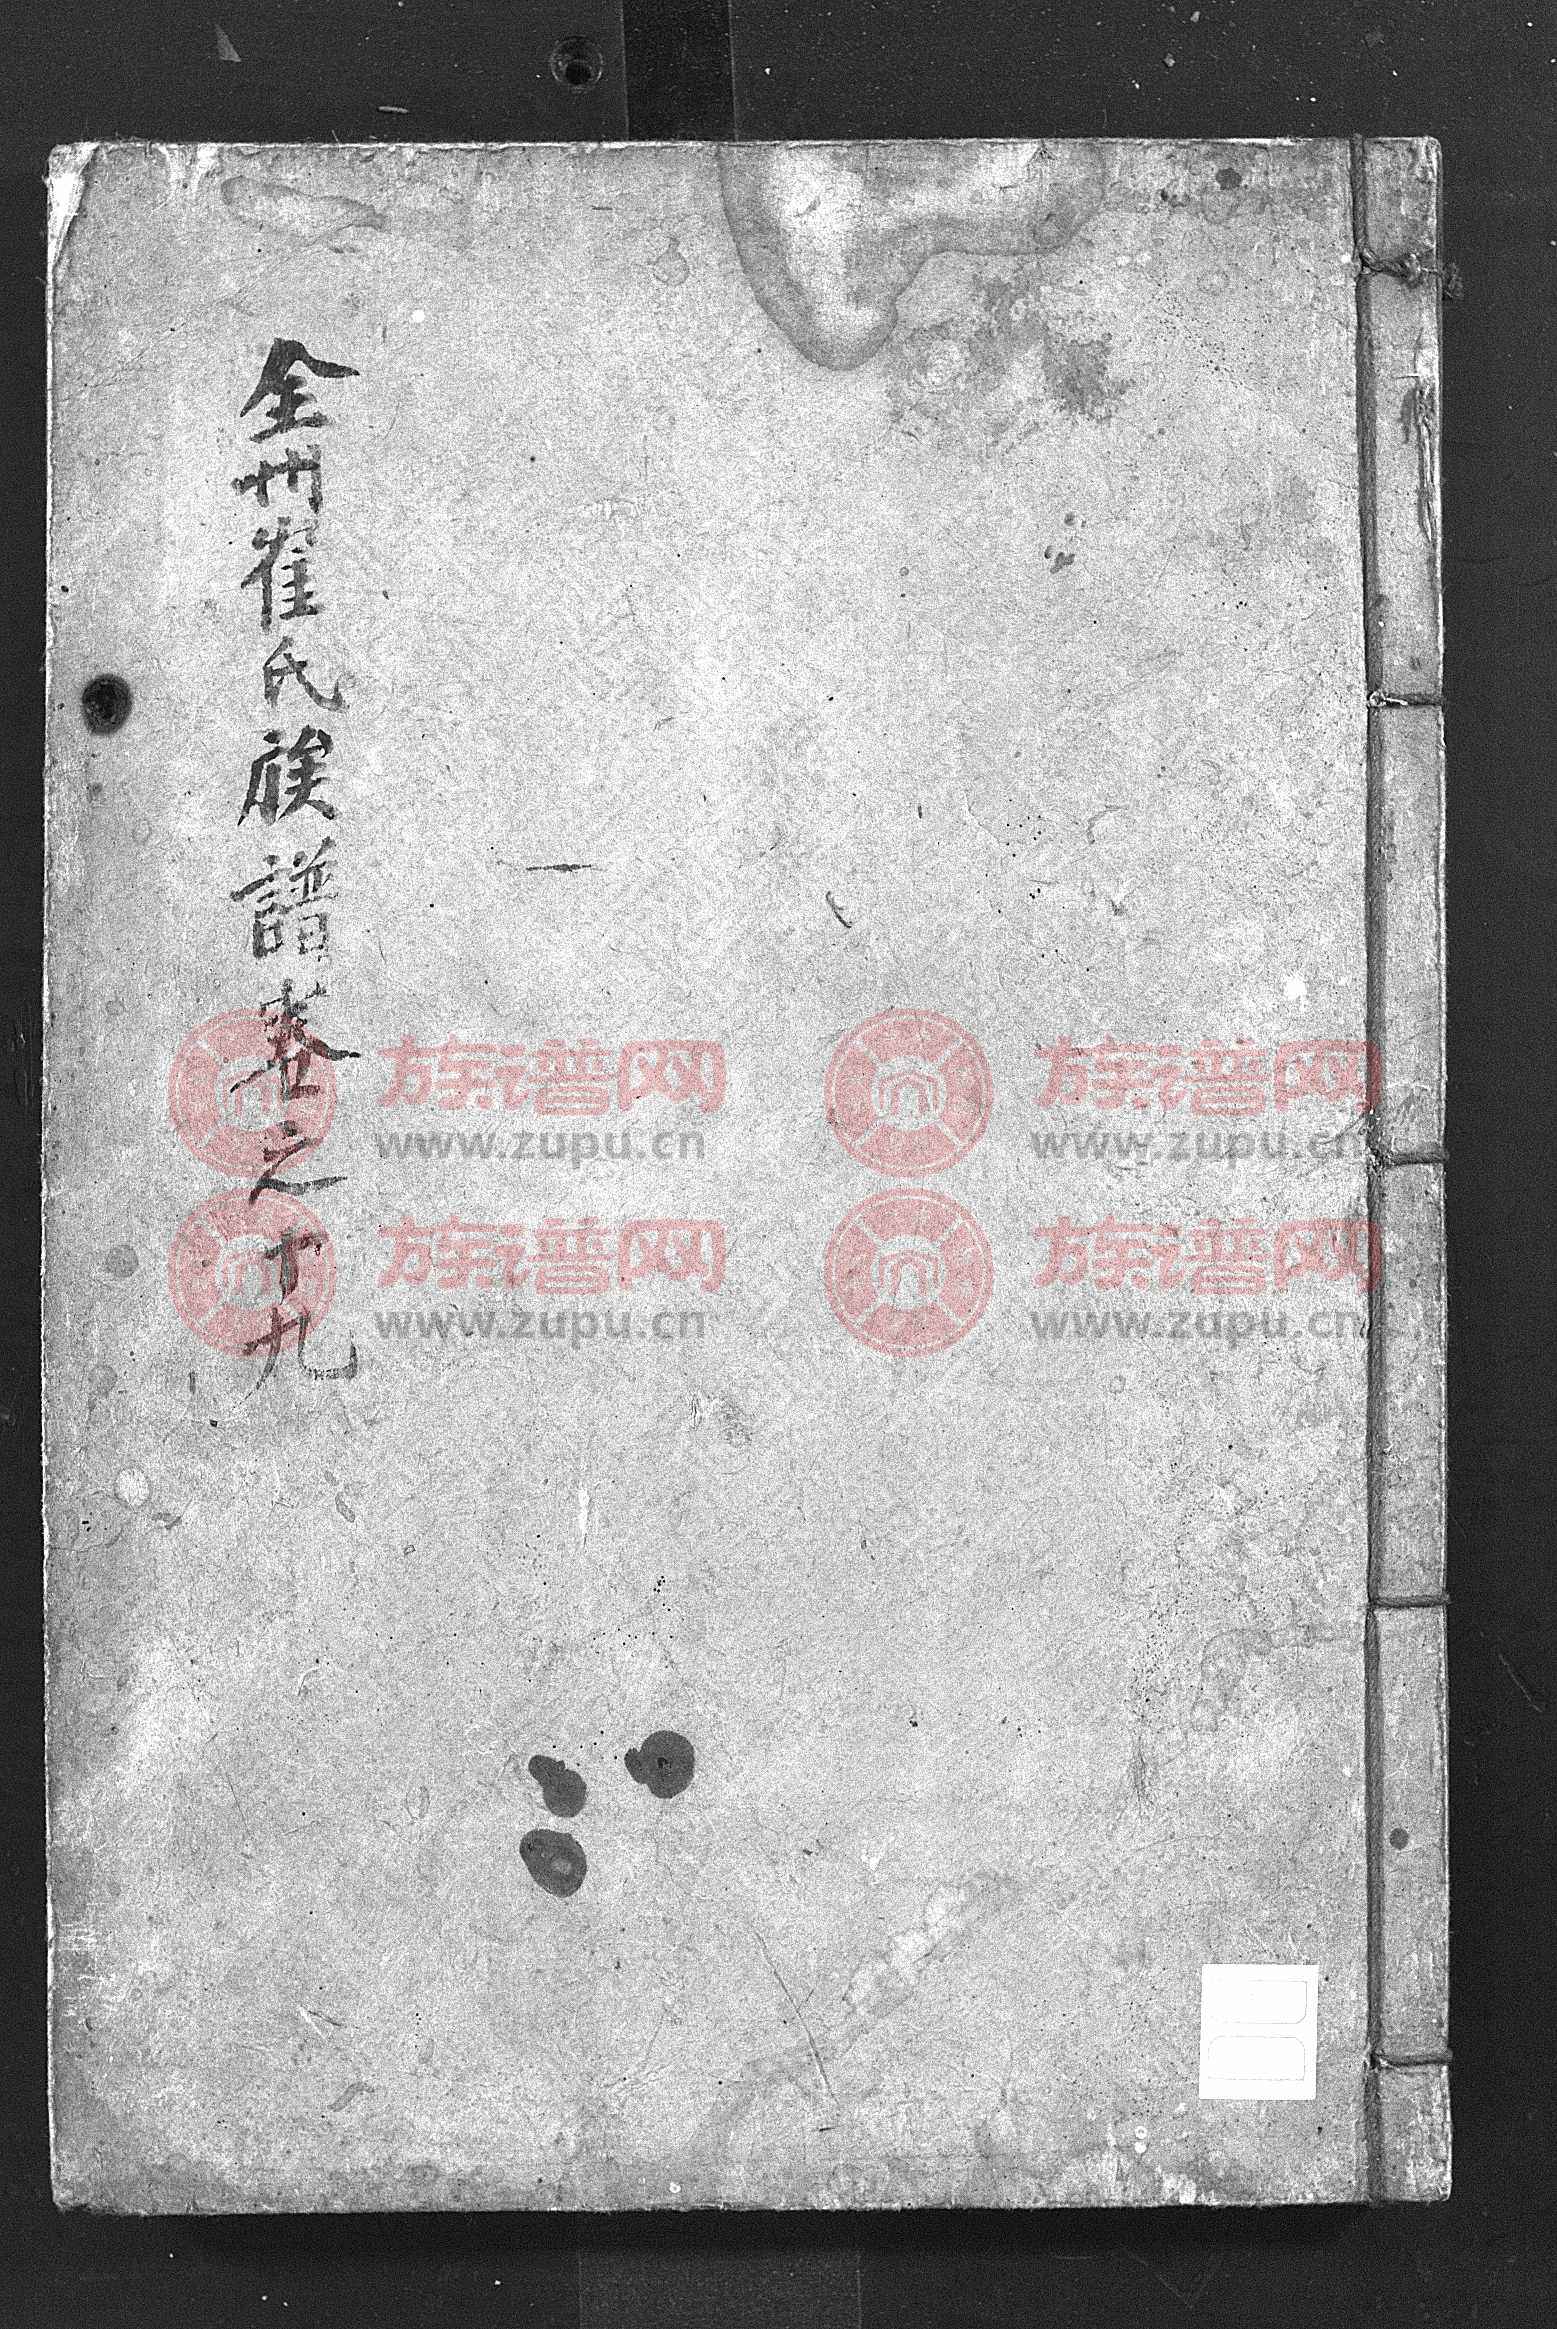 全州崔氏族譜卷之十九
族谱网
www.zupu.cn
族谱网
www.zupu.cn
族谱网
www.zupu.cn
族谱网
www.zupu.cn